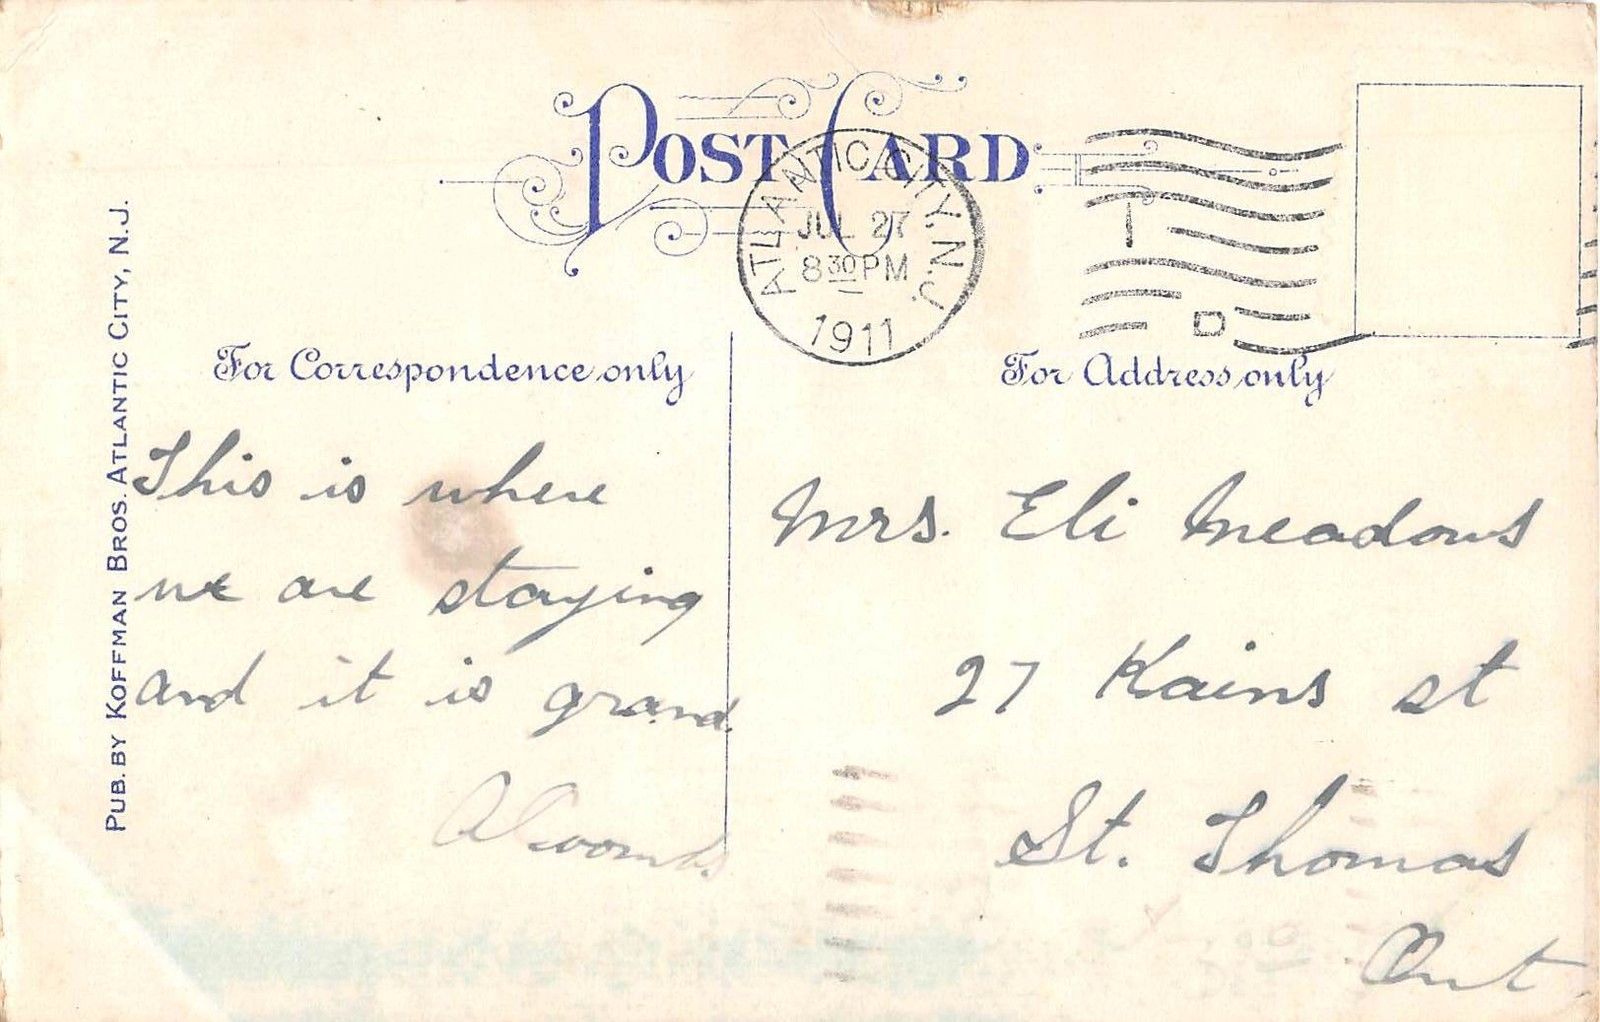 POST CARD
ATLANTIC CITY, N.J.
JUL 27
8 30 PM
1911
D
PUB. BY KOFFMAN BROS. ATLANTIC CITY, N.J.
For Correspondence only
This is where
we are staying
and it is grand.
For Address only
Mrs. Eli Meadows
27 Kains st
St. Thomas
Ont.